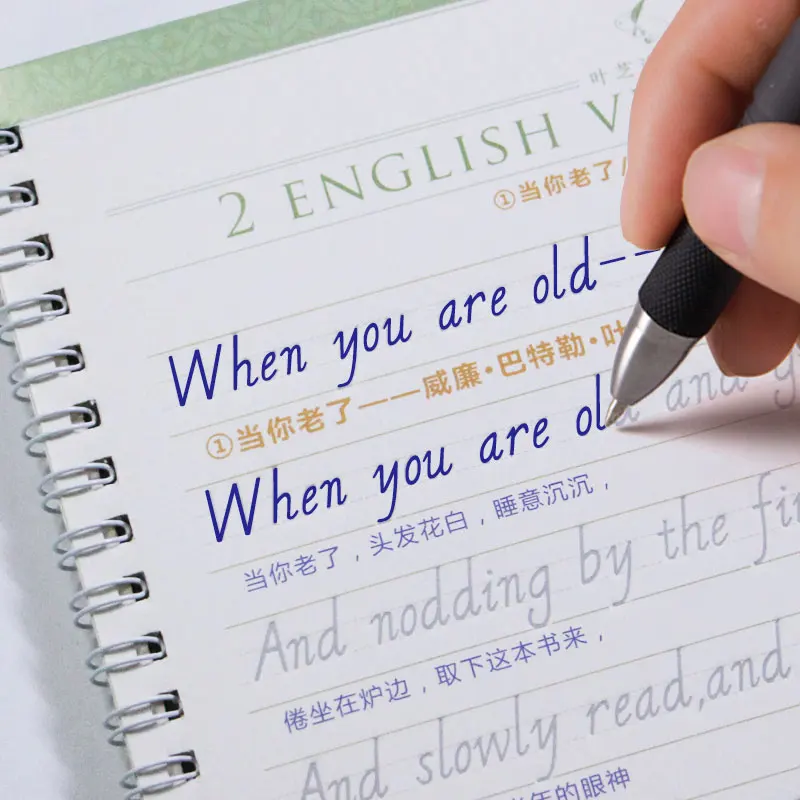 叶芝
2 ENGLISH
①当你老了
When you are old--
①当你老了——威廉·巴特勒·叶
When you are old and
当你老了，头发花白，睡意沉沉，
And nodding by the
倦坐在炉边，取下这本书来，
And slowly read,and
的眼神